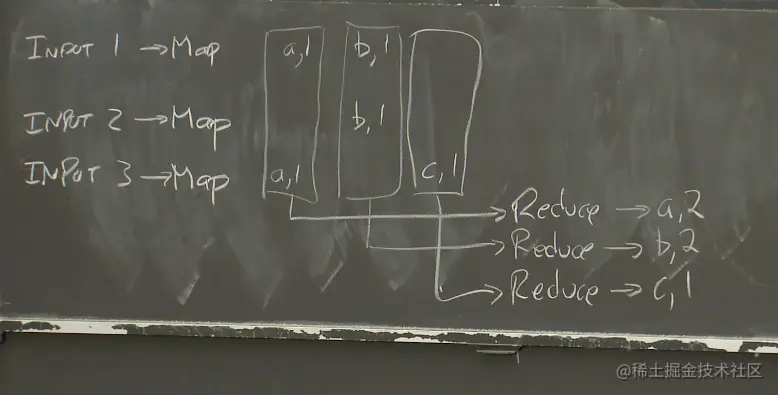 INPUT 1 → Map a,1 b,1
INPUT 2 → Map b,1
INPUT 3 → Map a,1 c,1
Reduce → a,2
Reduce → b,2
Reduce → c,1
@稀土掘金技术社区